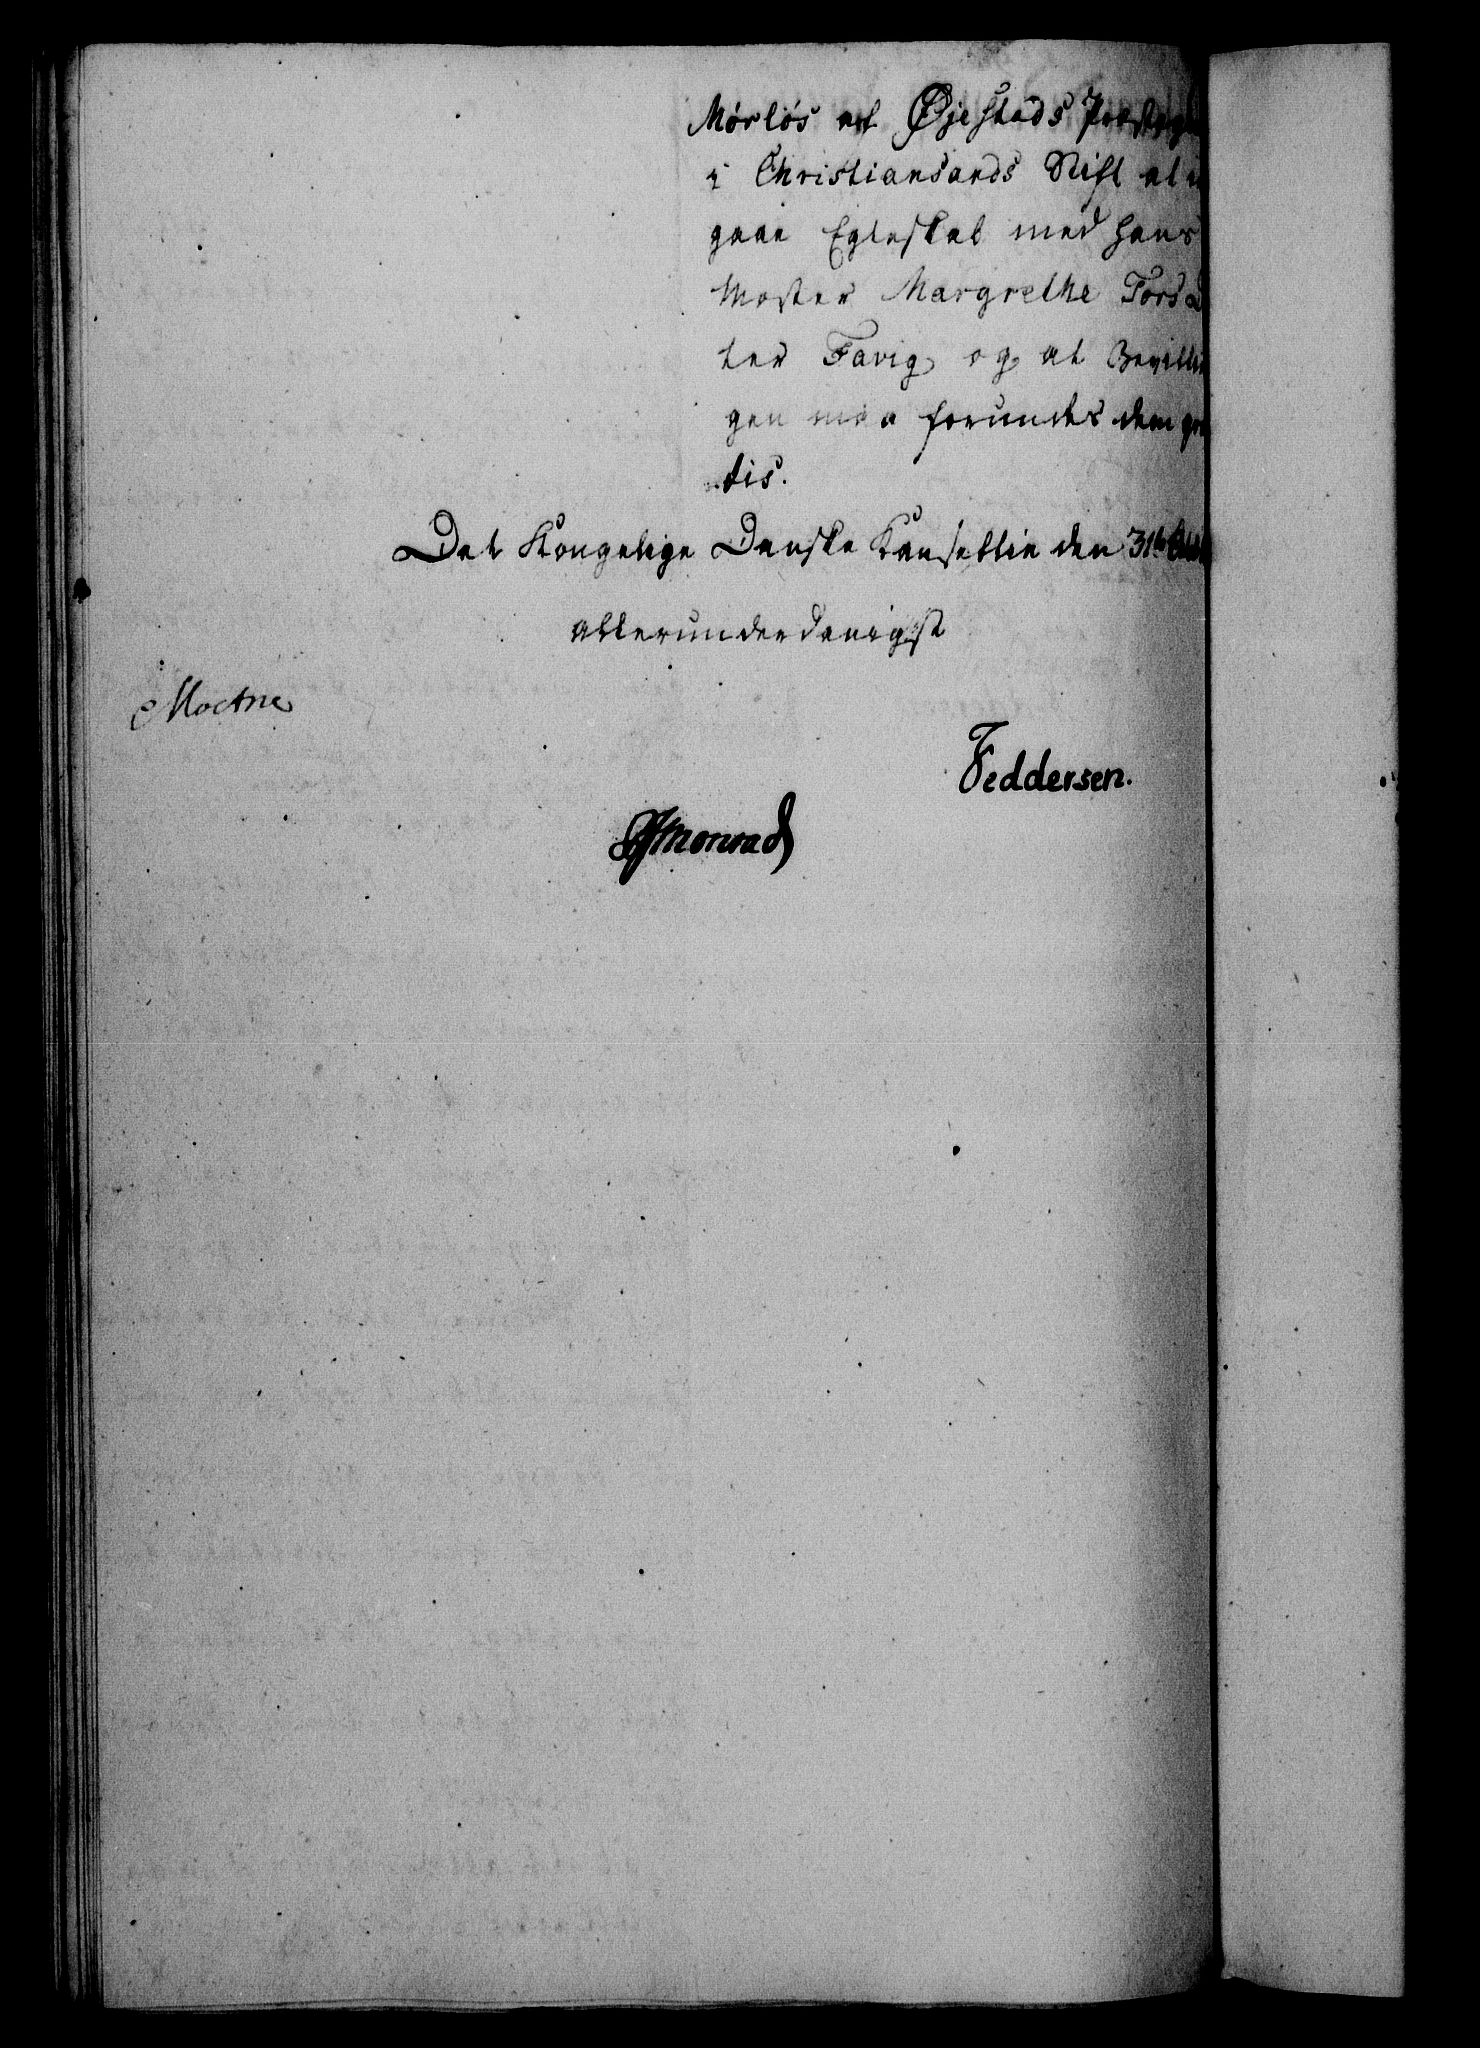 Mørløs af Øjestads Præsteg
i Christiansands Stift at i
gaae Egteskab med hans
Moster Margrethe Torsd
ter Favig og at Bevillin
gen maa forundes dem gra
tis.
Det Kongelige Danske Kancellie den 31te Octob
allerunderdanigst
Moctne
Feddersen.
Monrad